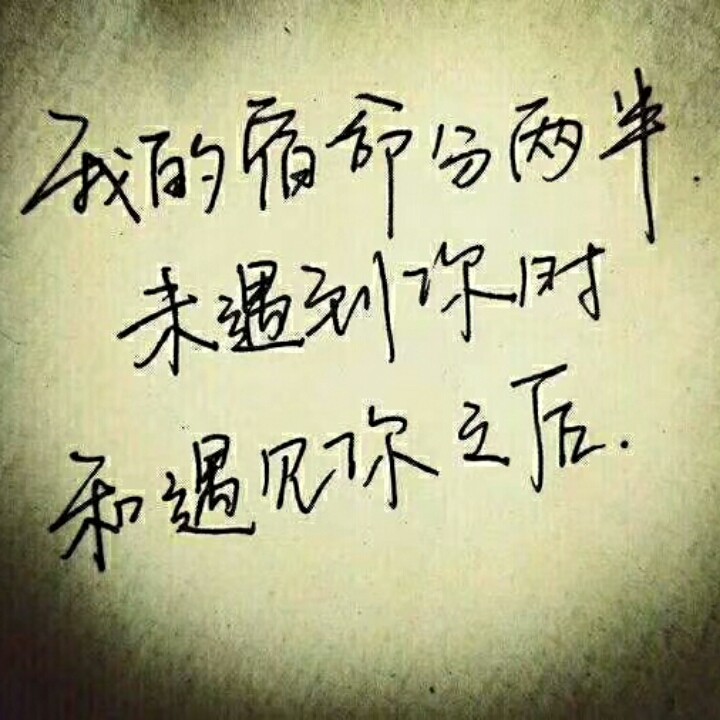 我的宿命分两半.
未遇到你时
和遇见你之后.